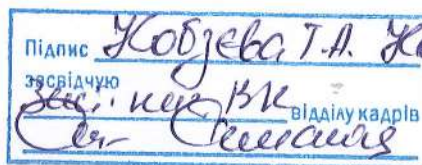 Підпис Кобзєва Т.А.
засвідчую
Заст. нач ВК відділу кадрів